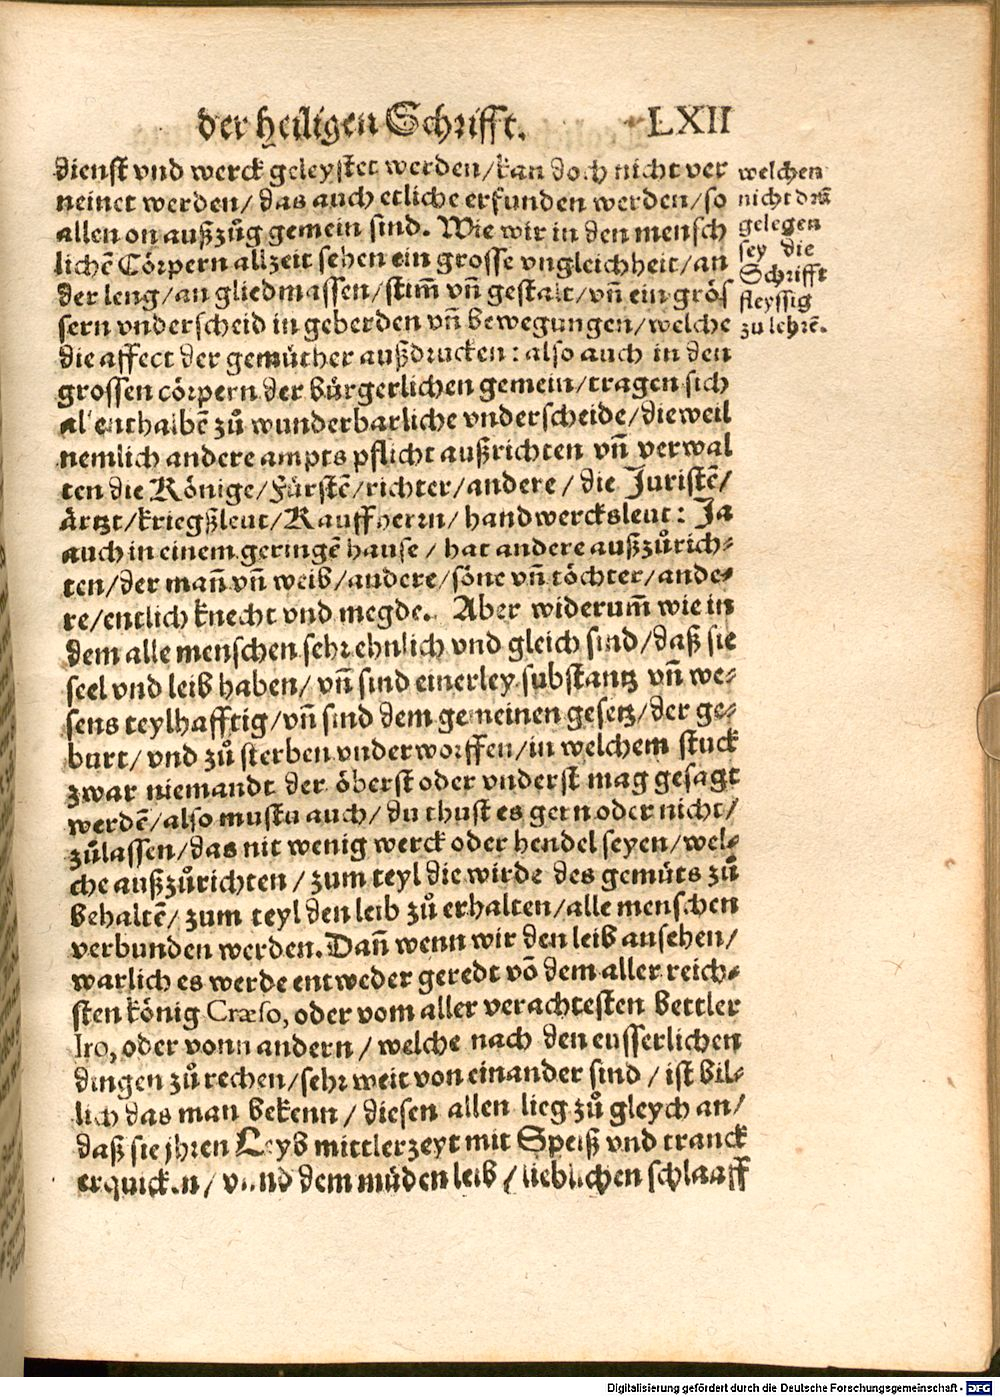 der heiligen Schrifft. LXII
dienst vnd werck geleystet werden/kan doch nicht ver
neinet werden/ das auch etliche erfunden werden/so
allen on außzůg gemein sind. Wie wir in den mensch
lichē Cörpern allzeit sehen ein grosse vngleichheit/an
der leng/an gliedmassen/stim̃ vn̄ gestalt/vn̄ ein grös
sern vnderscheid in geberden vn̄ bewegungen/welche
die affect der gemüther außdrucken: also auch in den
grossen cörpern der bürgerlichen gemein/tragen sich
allenthalbē zů wunderbarliche vnderscheide/dieweil
nemlich andere ampts pflicht außrichten vn̄ verwal
ten die Könige/Fürstē/richter/andere/die Juristē/
ärtzt/kriegßleut/Kauffherrn/handwercksleut: Ja
auch in einem geringē hause/hat andere außzůrich-
ten/der man̄ vn̄ weib/andere/söne vn̄ töchter/ande-
re/entlich knecht vnd megde. Aber widerum̃ wie in
dem alle menschen sehr ehnlich vnd gleich sind/daß sie
seel vnd leib haben/vn̄ sind einerley substantz vn̄ we-
sens teylhafftig/vn̄ sind dem gemeinen gesetz/der ge-
burt/vnd zů sterben vnderworffen/in welchem stuck
zwar niemandt der öberst oder vnderst mag gesagt
werdē/also mustu auch/du thust es gern oder nicht/
zůlassen/das nit wenig werck oder hendel seyen/wel-
che außzůrichten/zum teyl die wirde des gemüts zů
behaltē/zum teyl den leib zů erhalten/alle menschen
verbunden werden. Dan̄ wenn wir den leib ansehen/
warlich es werde entweder geredt vō dem aller reich-
sten könig Cræso, oder vom aller verachtesten bettler
Iro, oder vonn andern/welche nach den eusserlichen
dingen zů rechen/sehr weit von einander sind/ist bil-
lich das man bekenn/diesen allen lieg zů gleych an/
daß sie jhren Leyb mittlerzeyt mit Speiß vnd tranck
erquicken/vnnd dem müden leib/lieblichen schlaaff
welchen
nicht drā
gelegen
sey die
Schrifft
fleyssig
zu lehrē.
Digitalisierung gefördert durch die Deutsche Forschungsgemeinschaft - DFG